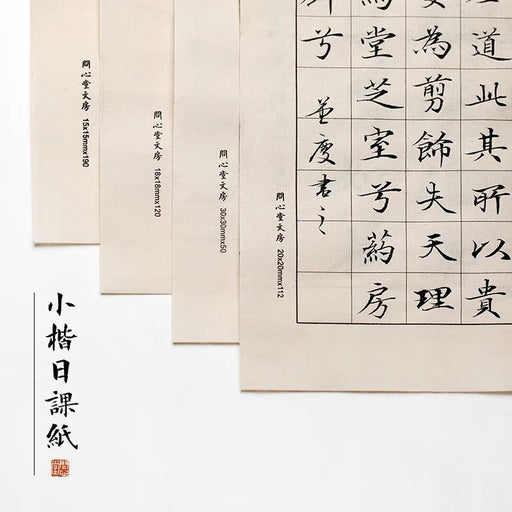 道此其所以貴
為剪飾失天理
堂芝室兮葯房
兮
並度書之
問心堂文房 20x20mmx112
問心堂文房 30x30mmx50
問心堂文房 18x18mmx120
問心堂文房 15x15mmx190
小楷日課紙